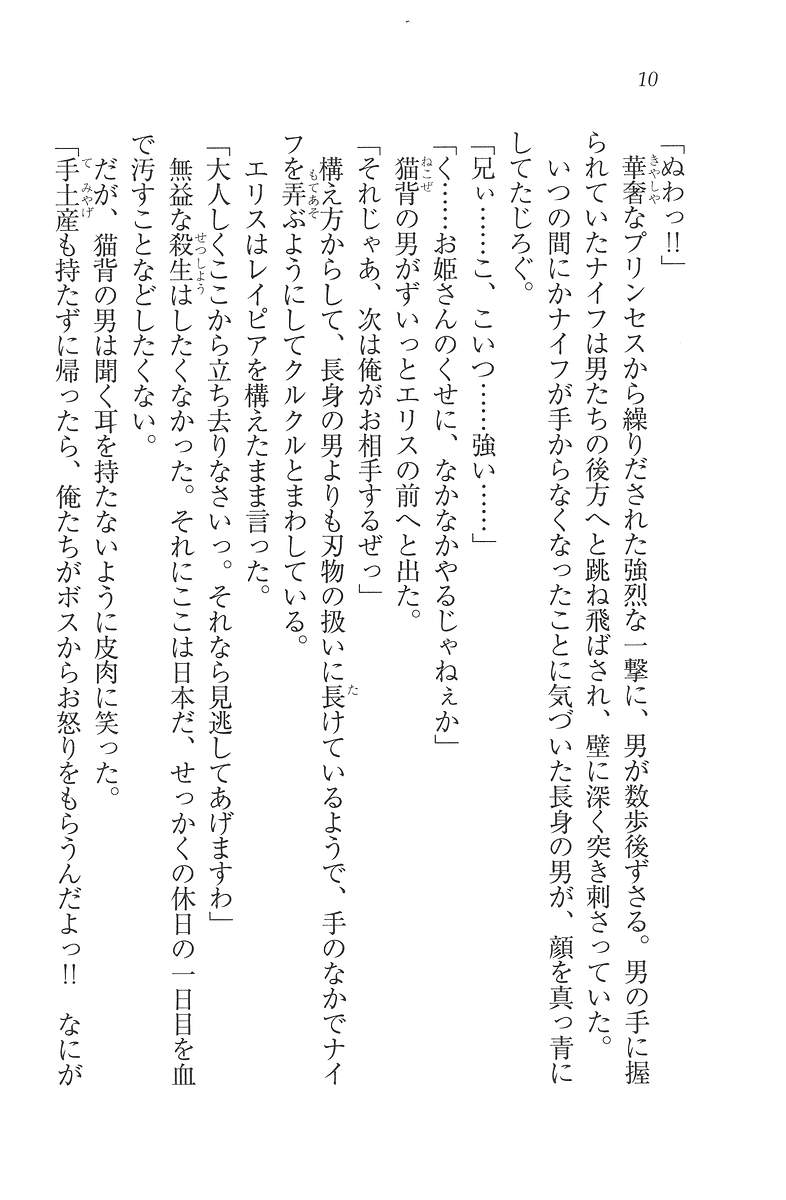 10
「ぬわっ!!」
　華奢なプリンセスから繰りだされた強烈な一撃に、男が数歩後ずさる。男の手に握
られていたナイフは男たちの後方へと跳ね飛ばされ、壁に深く突き刺さっていた。
　いつの間にかナイフが手からなくなったことに気づいた長身の男が、顔を真っ青に
してたじろぐ。
「兄ぃ……こ、こいつ……強い……」
「く……お姫さんのくせに、なかなかやるじゃねぇか」
　猫背の男がずいっとエリスの前へと出た。
「それじゃあ、次は俺がお相手するぜっ」
　構え方からして、長身の男よりも刃物の扱いに長けているようで、手のなかでナイ
フを弄ぶようにしてクルクルとまわしている。
　エリスはレイピアを構えたまま言った。
「大人しくここから立ち去りなさいっ。それなら見逃してあげますわ」
　無益な殺生はしたくなかった。それにここは日本だ、せっかくの休日の一日目を血
で汚すことなどしたくない。
　だが、猫背の男は聞く耳を持たないように皮肉に笑った。
「手土産も持たずに帰ったら、俺たちがボスからお怒りをもらうんだよっ!!　なにが